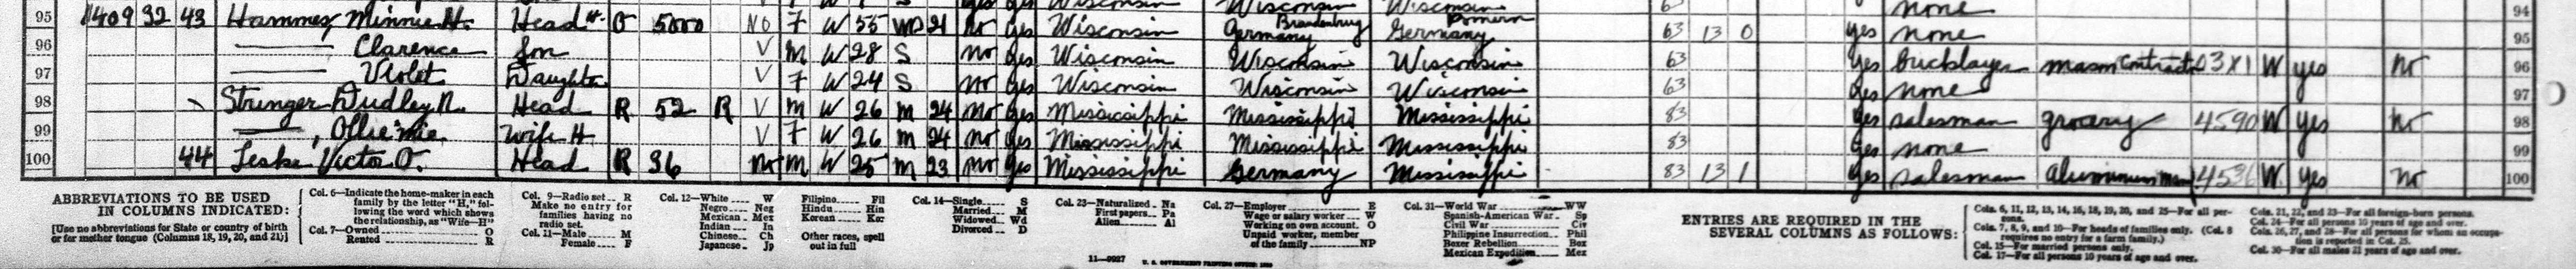 none 94
95 1409 32 43 Hammes, Minnie H. Head H. O 5000 No F W 55 Wd 21 no yes Wisconsin Germany Brandenburg Germany Pomern 63 13 0 yes none 95
96 —— Clarence Son V M W 28 S no yes Wisconsin Wisconsin Wisconsin 63 yes bricklayer mason Contractor 03X1 W yes no 96
97 —— Violet Daughter V F W 24 S no yes Wisconsin Wisconsin Wisconsin 63 yes none 97
98 Stringer Dudley N. Head R 52 R V M W 26 M 24 no yes Mississippi Mississippi Mississippi 83 yes salesman grocery 4590 W yes no 98
99 ——, Ollie mie Wife H. V F W 26 M 24 no yes Mississippi Mississippi Mississippi 83 yes none 99
100 44 Leske Victor O. Head R 36 No M W 25 M 23 no yes Mississippi Germany Mississippi 83 13 1 yes salesman Aluminum W yes no 100
ABBREVIATIONS TO BE USED
IN COLUMNS INDICATED:
[Use no abbreviations for State or country of birth
or for mother tongue (Columns 18, 19, 20, and 21)]
Col. 6—Indicate the home-maker in each
family by the letter "H," fol-
lowing the word which shows
the relationship, as "Wife—H"
Col. 7—Owned O
Rented R
Col. 9—Radio set R
Make no entry for
families having no
radio set.
Col. 11—Male M
Female F
Col. 12—White W
Negro Neg
Mexican Mex
Indian In
Chinese Ch
Japanese Jp
Filipino Fil
Hindu Hin
Korean Kor
Other races, spell
out in full
Col. 14—Single S
Married M
Widowed Wd
Divorced D
Col. 23—Naturalized Na
First papers Pa
Alien Al
Col. 27—Employer E
Wage or salary worker W
Working on own account O
Unpaid worker, member
of the family NP
Col. 31—World War WW
Spanish-American War Sp
Civil War Civ
Philippine Insurrection Phil
Boxer Rebellion Box
Mexican Expedition Mex
ENTRIES ARE REQUIRED IN THE
SEVERAL COLUMNS AS FOLLOWS:
Cols. 6, 11, 12, 13, 14, 16, 18, 19, 20, and 25—For all per-
sons.
Cols. 7, 8, 9, and 10—For heads of families only. (Col. 8
requires no entry for a farm family.)
Col. 15—For married persons only.
Col. 17—For all persons 10 years of age and over.
Cols. 21, 22, and 23—For all foreign-born persons.
Col. 24—For all persons 10 years of age and over.
Cols. 26, 27, and 28—For all persons for whom an occupa-
tion is reported in Col. 25.
Col. 30—For all males 21 years of age and over.
11—9927 U. S. GOVERNMENT PRINTING OFFICE: 1930